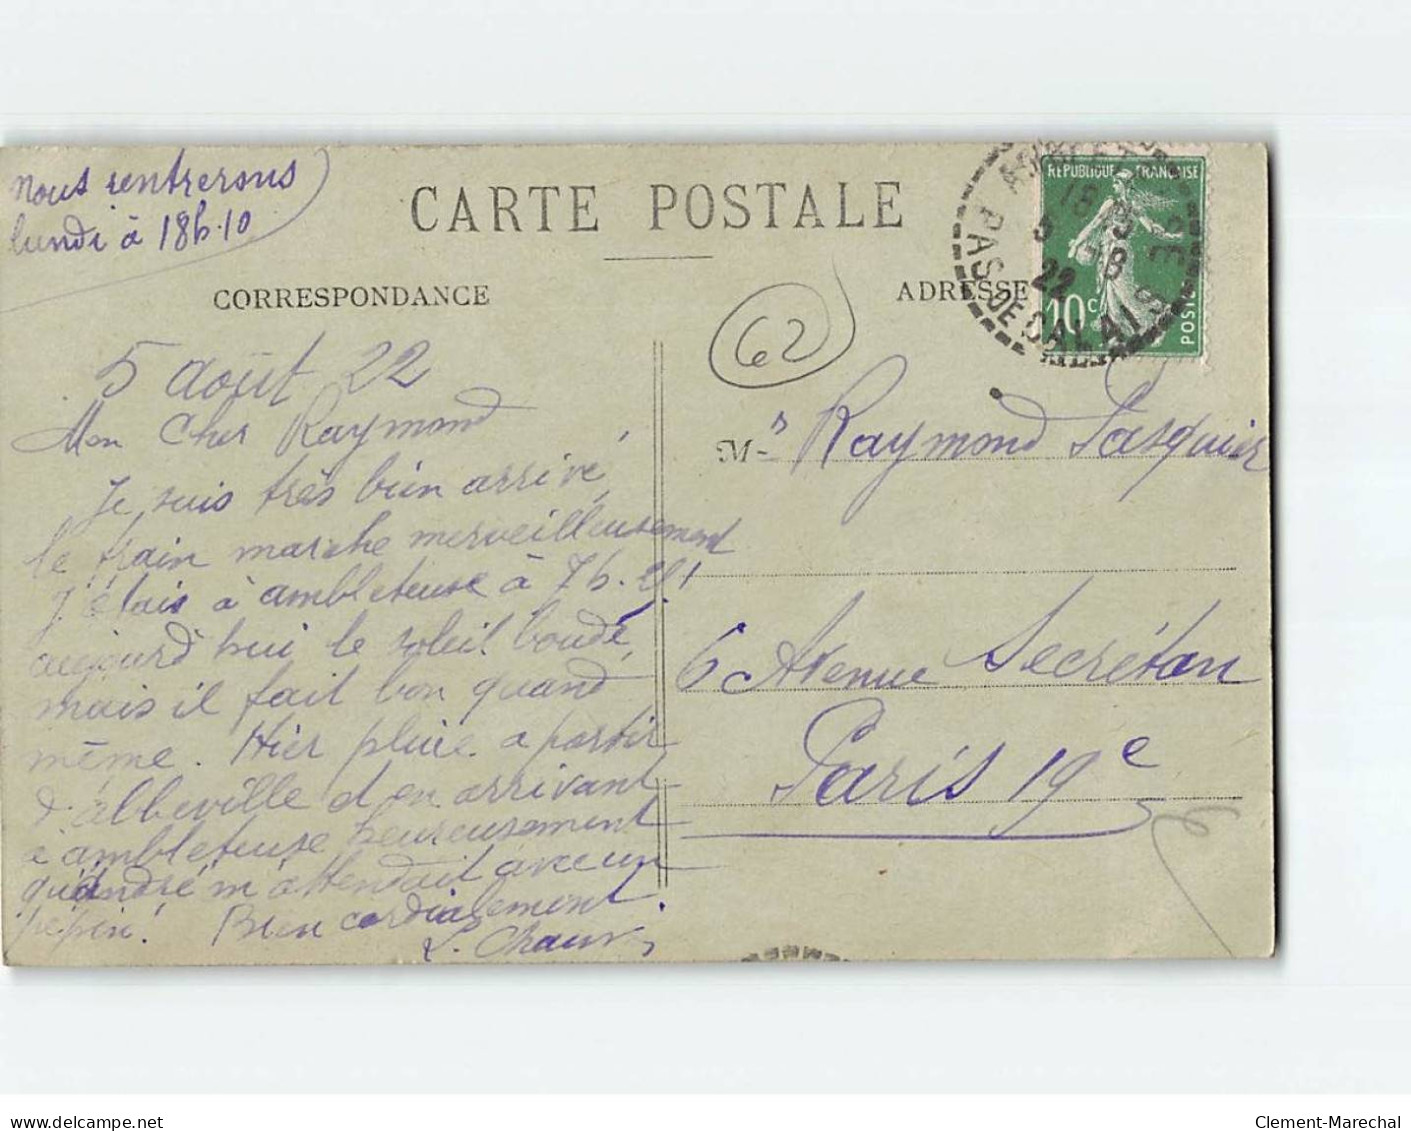 nous rentrerons
lundi à 18h.10
CARTE POSTALE
CORRESPONDANCE
ADRESSE
62
REPUBLIQUE FRANÇAISE
10c
POSTES
PAS DE CALAIS
18
5 - 8
22
5 août 22
Mon Cher Raymond
Je suis très bien arrivé,
le train marche merveilleusement
j'étais à ambleteuse à 7h.
aujourd'hui le soleil boude,
mais il fait bon quand
même. Hier pluie a partir
d'abbeville et en arrivant
a ambleteuse heureusement
qu'andré m'attendait avec un
pépin! Bien cordialement.
Mr Raymond Pasquier
6 Avenue Secrétan
Paris 19e
delcampe.net
Clement-Marechal